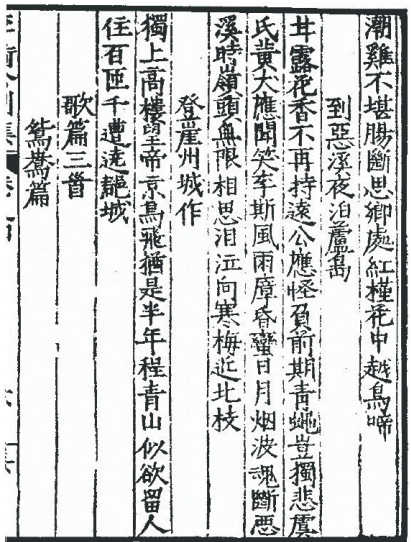 潮雞不堪腸斷思鄉處紅槿花中越鳥啼
到惡溪夜泊蘆島
甘露花香不再持遠公應怪負前期青蠅豈獨悲虞
氏黃犬應聞笑李斯風雨瘴昏蠻日月烟波魂斷惡
溪時嶺頭無限相思泪泣向寒梅近北枝
登崖州城作
獨上高樓望帝京鳥飛猶是半年程青山似欲留人
住百匝千遭遶郡城
歌篇三首
鴛鴦篇